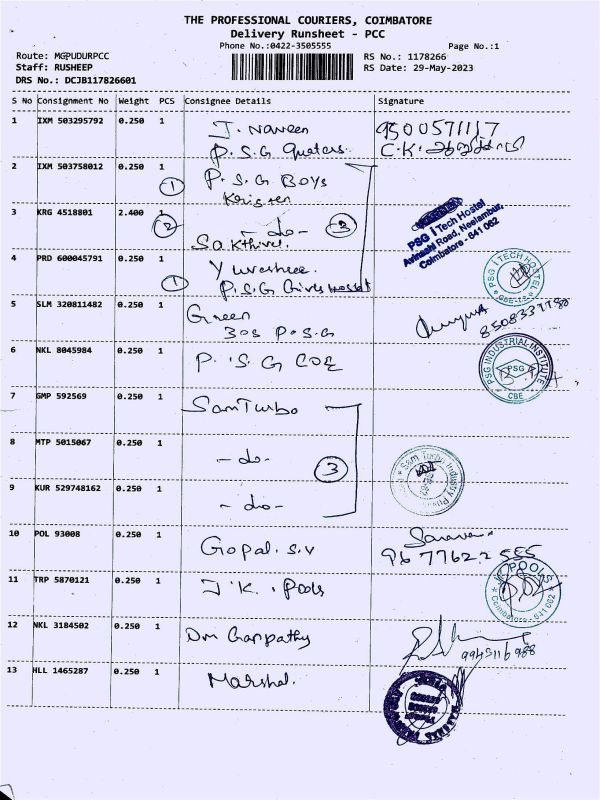 THE PROFESSIONAL COURIERS, COIMBATORE
Delivery Runsheet - PCC
Phone No.:0422-3505555 Page No.:1
Route: MGPUDURPCC RS No.: 1178266
Staff: RUSHEEP RS Date: 29-May-2023
DRS No.: DCJB117826601
S No Consignment No Weight PCS Consignee Details Signature
1 IXM 503295792 0.250 1 J. Naveen 9500571117
P.S.G Quaters. C.K.
2 IXM 503758012 0.250 1 P.S.G Boys
1
3 KRG 4518801 2.400 1 -do- 3
2 Sakthivel.
PSG iTech Hostel
Avinashi Road, Neelambur,
Coimbatore - 641 062
4 PRD 600045791 0.250 1
1 P.S.G Girls Hostel
PSG iTECH HOSTEL
5 SLM 320811482 0.250 1 Green
303 P.S.G
6 NKL 8045984 0.250 1 P.S.G COE
PSG INDUSTRIAL INSTITUTE
PSG
CBE
7 GMP 592569 0.250 1 Sam Turbo
8 MTP 5015067 0.250 1 -do- 3
Sam Turbo Industry
9 KUR 529748162 0.250 1 -do-
10 POL 93008 0.250 1 Gopal. S.V
9677622555
11 TRP 5870121 0.250 1 J.K. Pools
POOLS
Coimbatore - 641 062
12 NKL 3184502 0.250 1 Om Ganpathy
13 HLL 1465287 0.250 1 Marshal.